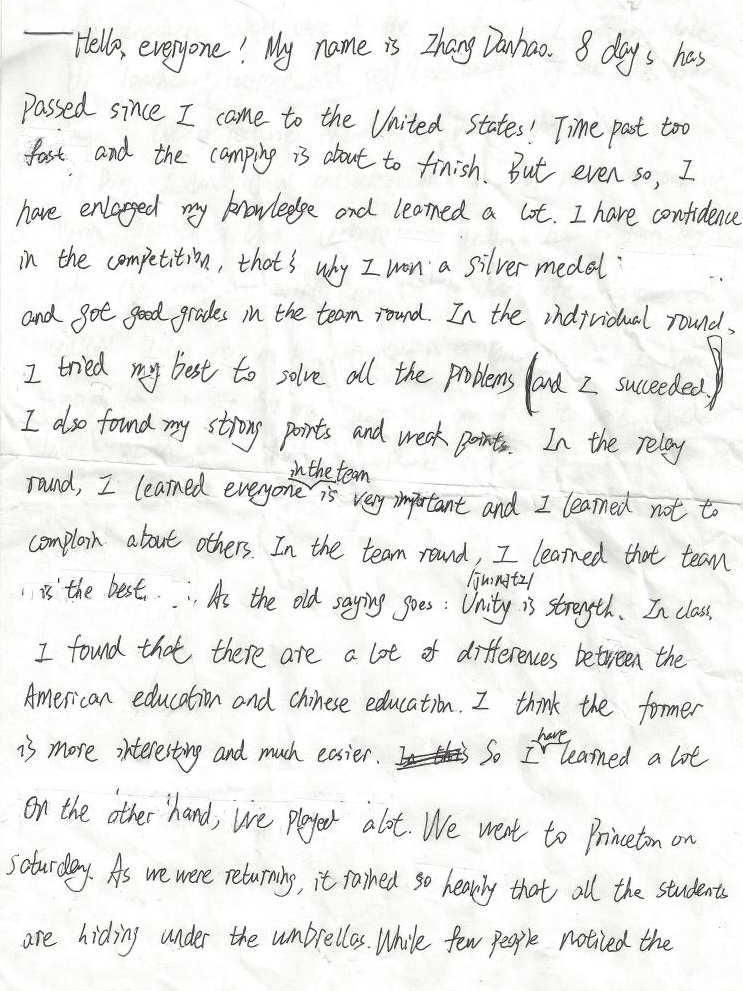 Hello, everyone! My name is Zhang Danhao. 8 days has
passed since I came to the United States! Time past too
fast and the camping is about to finish. But even so, I
have enlarged my knowledge and learned a lot. I have confidence
in the competition, that's why I won a silver medal
and got good grades in the team round. In the individual round,
I tried my best to solve all the problems (and I succeeded.)
I also found my strong points and weak points. In the relay
in the team
round, I learned everyone is very important and I learned not to
complain about others. In the team round, I learned that team
is the best. As the old saying goes: Unity is strength. In class,
I found that there are a lot of differences between the
American education and Chinese education. I think the former
have
is more interesting and much easier. So I learned a lot
On the other hand, we played a lot. We went to Princeton on
Saturday. As we were returning, it rained so heavily that all the students
are hiding under the umbrellas. While few people noticed the